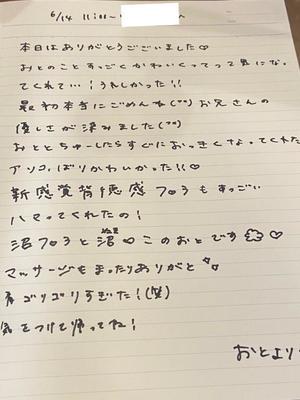 6/14 11:00～
本日はありがとうございました♡
おとのことすっごくかわいくってって気にな。
てくれてい…！うれしかった!!
最初本当にごめんね(""")お兄さんの
優しさが沁みました("")
おとちゅーしたらすぐにおっきくなってくれた
アソコ、ばりかわいかった!!♡
新感覚背徳感フロスもすっごい
ハマってくれたの！
沼フロスと沼♡このおとです♡
マッサージもまったりありがと
肩ゴリゴリすぎた！(笑)
気をつけて帰ってね！
おとより